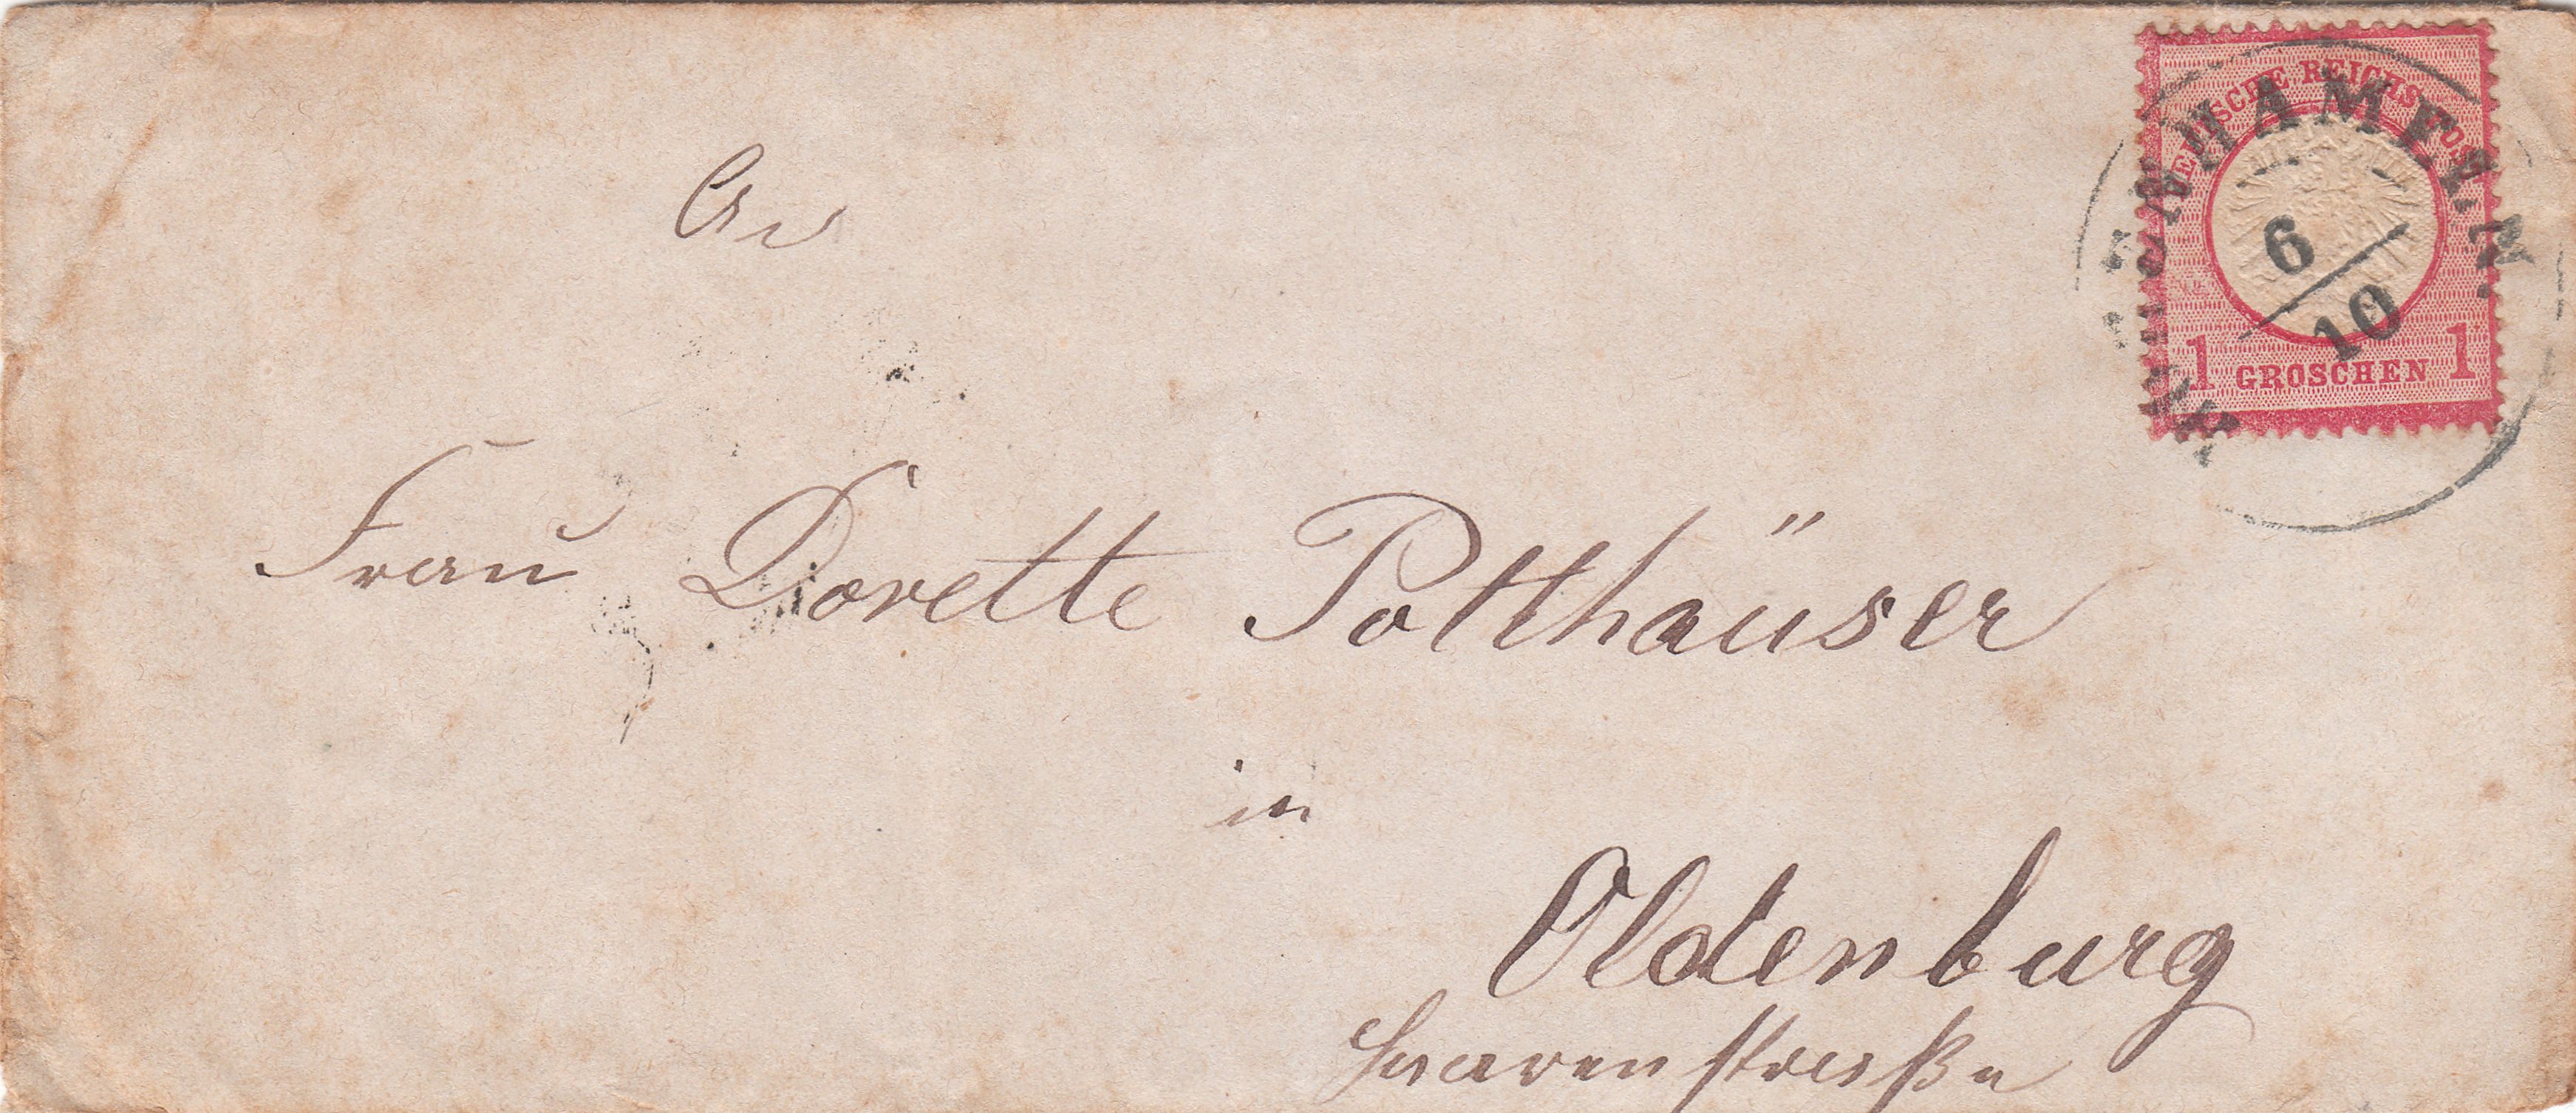 DEUTSCHE REICHS POST
1 GROSCHEN 1
HAMELN
6
10
An
Frau Dorette Potthäuser
in
Oldenburg
Haarenstraße